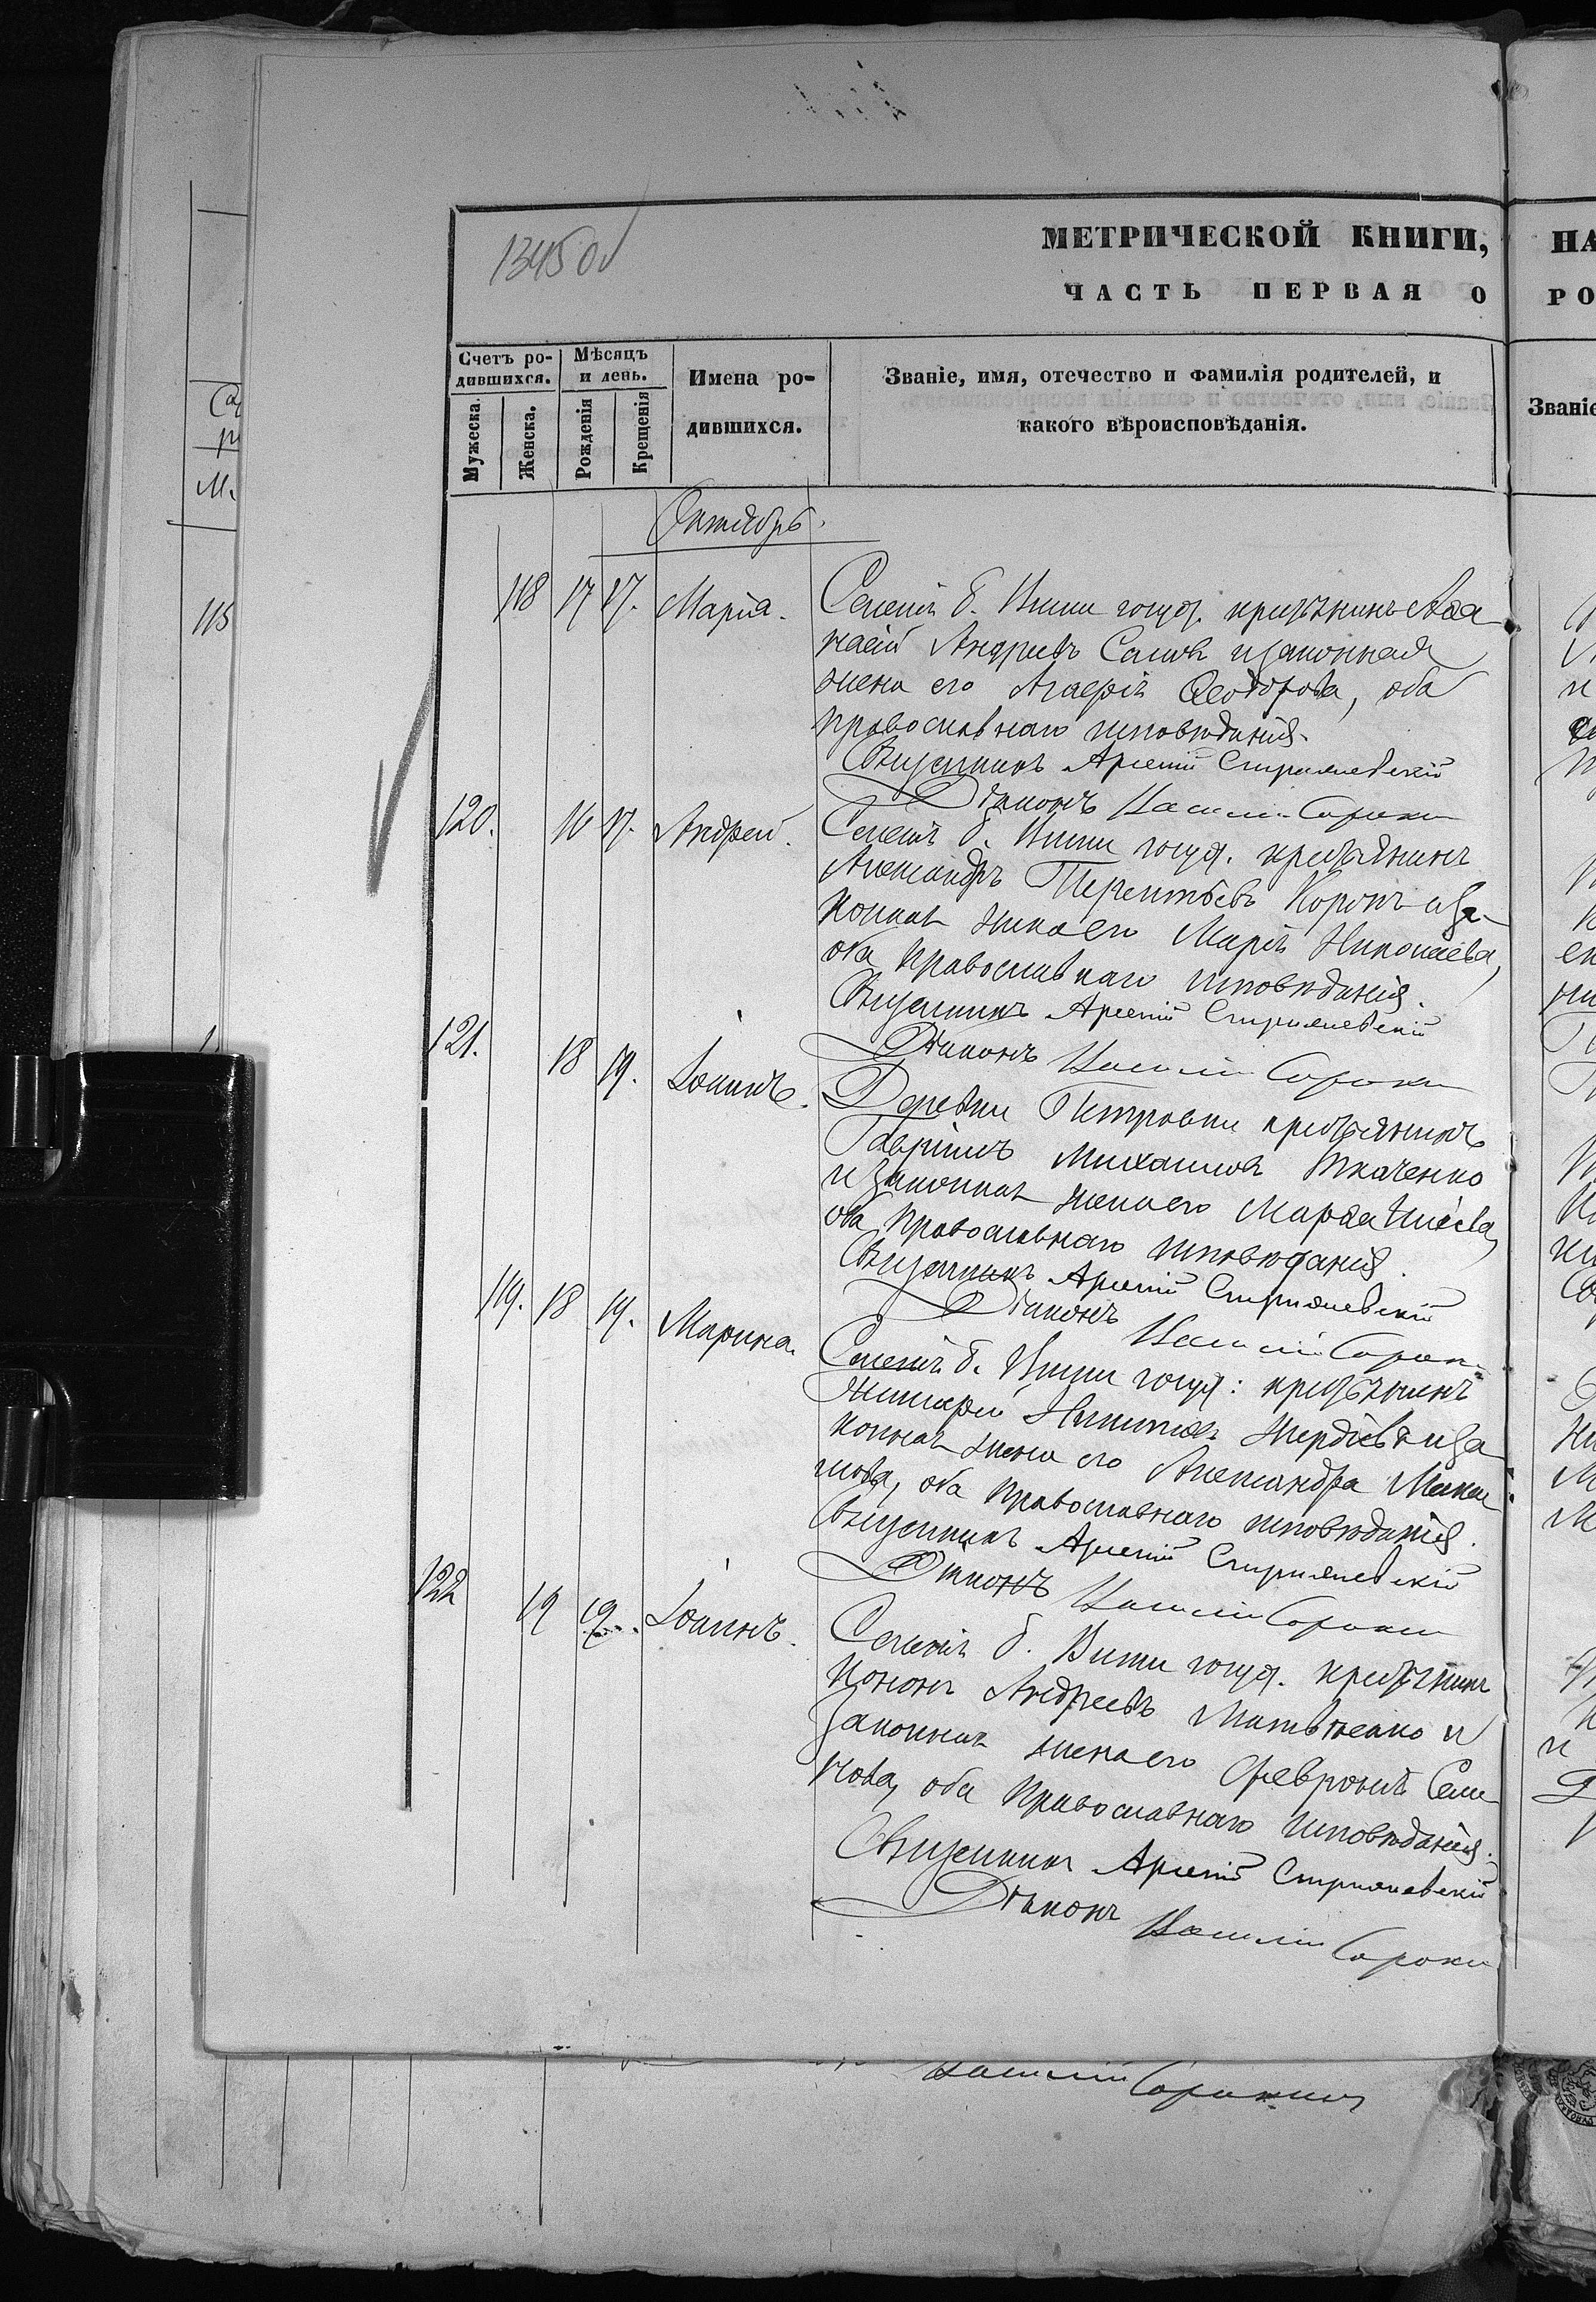 1345 об
МЕТРИЧЕСКОЙ КНИГИ, НА
ЧАСТЬ ПЕРВАЯ О РО
Счетъ ро-
дившихся.
Мужеска.
Женска.
Мѣсяцъ
и день.
Рожденія
Крещенія
Имена ро-
дившихся.
Званіе, имя, отечество и фамилія родителей, и
какого вѣроисповѣданія.
Званіе
Октябрь.
118 17 17. Марія. Селенія б. Виски госуд. крестьянинъ Аѳа-
насій Андреевъ и законная
жена его Ѳеодорова, оба
православнаго исповѣданія.
Священникъ Арсеній
Діаконъ Василій Сорокин
120. 16 17. Андрей. Селенія б. Виски госуд. крестьянинъ
Александръ Терентьевъ Коропъ и за-
конная жена его Марія Николаева,
оба православнаго исповѣданія.
Священникъ Арсеній
Діаконъ Василій Сорокин
121. 18 19. Іоаннъ. Деревни Петровки крестьянинъ
Гавріилъ Михайловъ Ткаченко
и законная жена его Марѳа
оба православнаго исповѣданія.
Священникъ Арсеній
Діаконъ Василій Сорокин
119. 18 19. Марина. Селенія б. Виски госуд: крестьянинъ
Никитовъ и за-
конная жена его Александра
оба православнаго исповѣданія.
Священникъ Арсеній
Діаконъ Василій Сорокин
122 19 19. Іоаннъ. Селенія б. Виски госуд. крестьянинъ
Кононъ Андреевъ Матвѣенко и
законная жена его Февронія Семе-
нова, оба православнаго исповѣданія.
Священникъ Арсеній
Діаконъ Василій Сорокин
115
Василій Сорокин